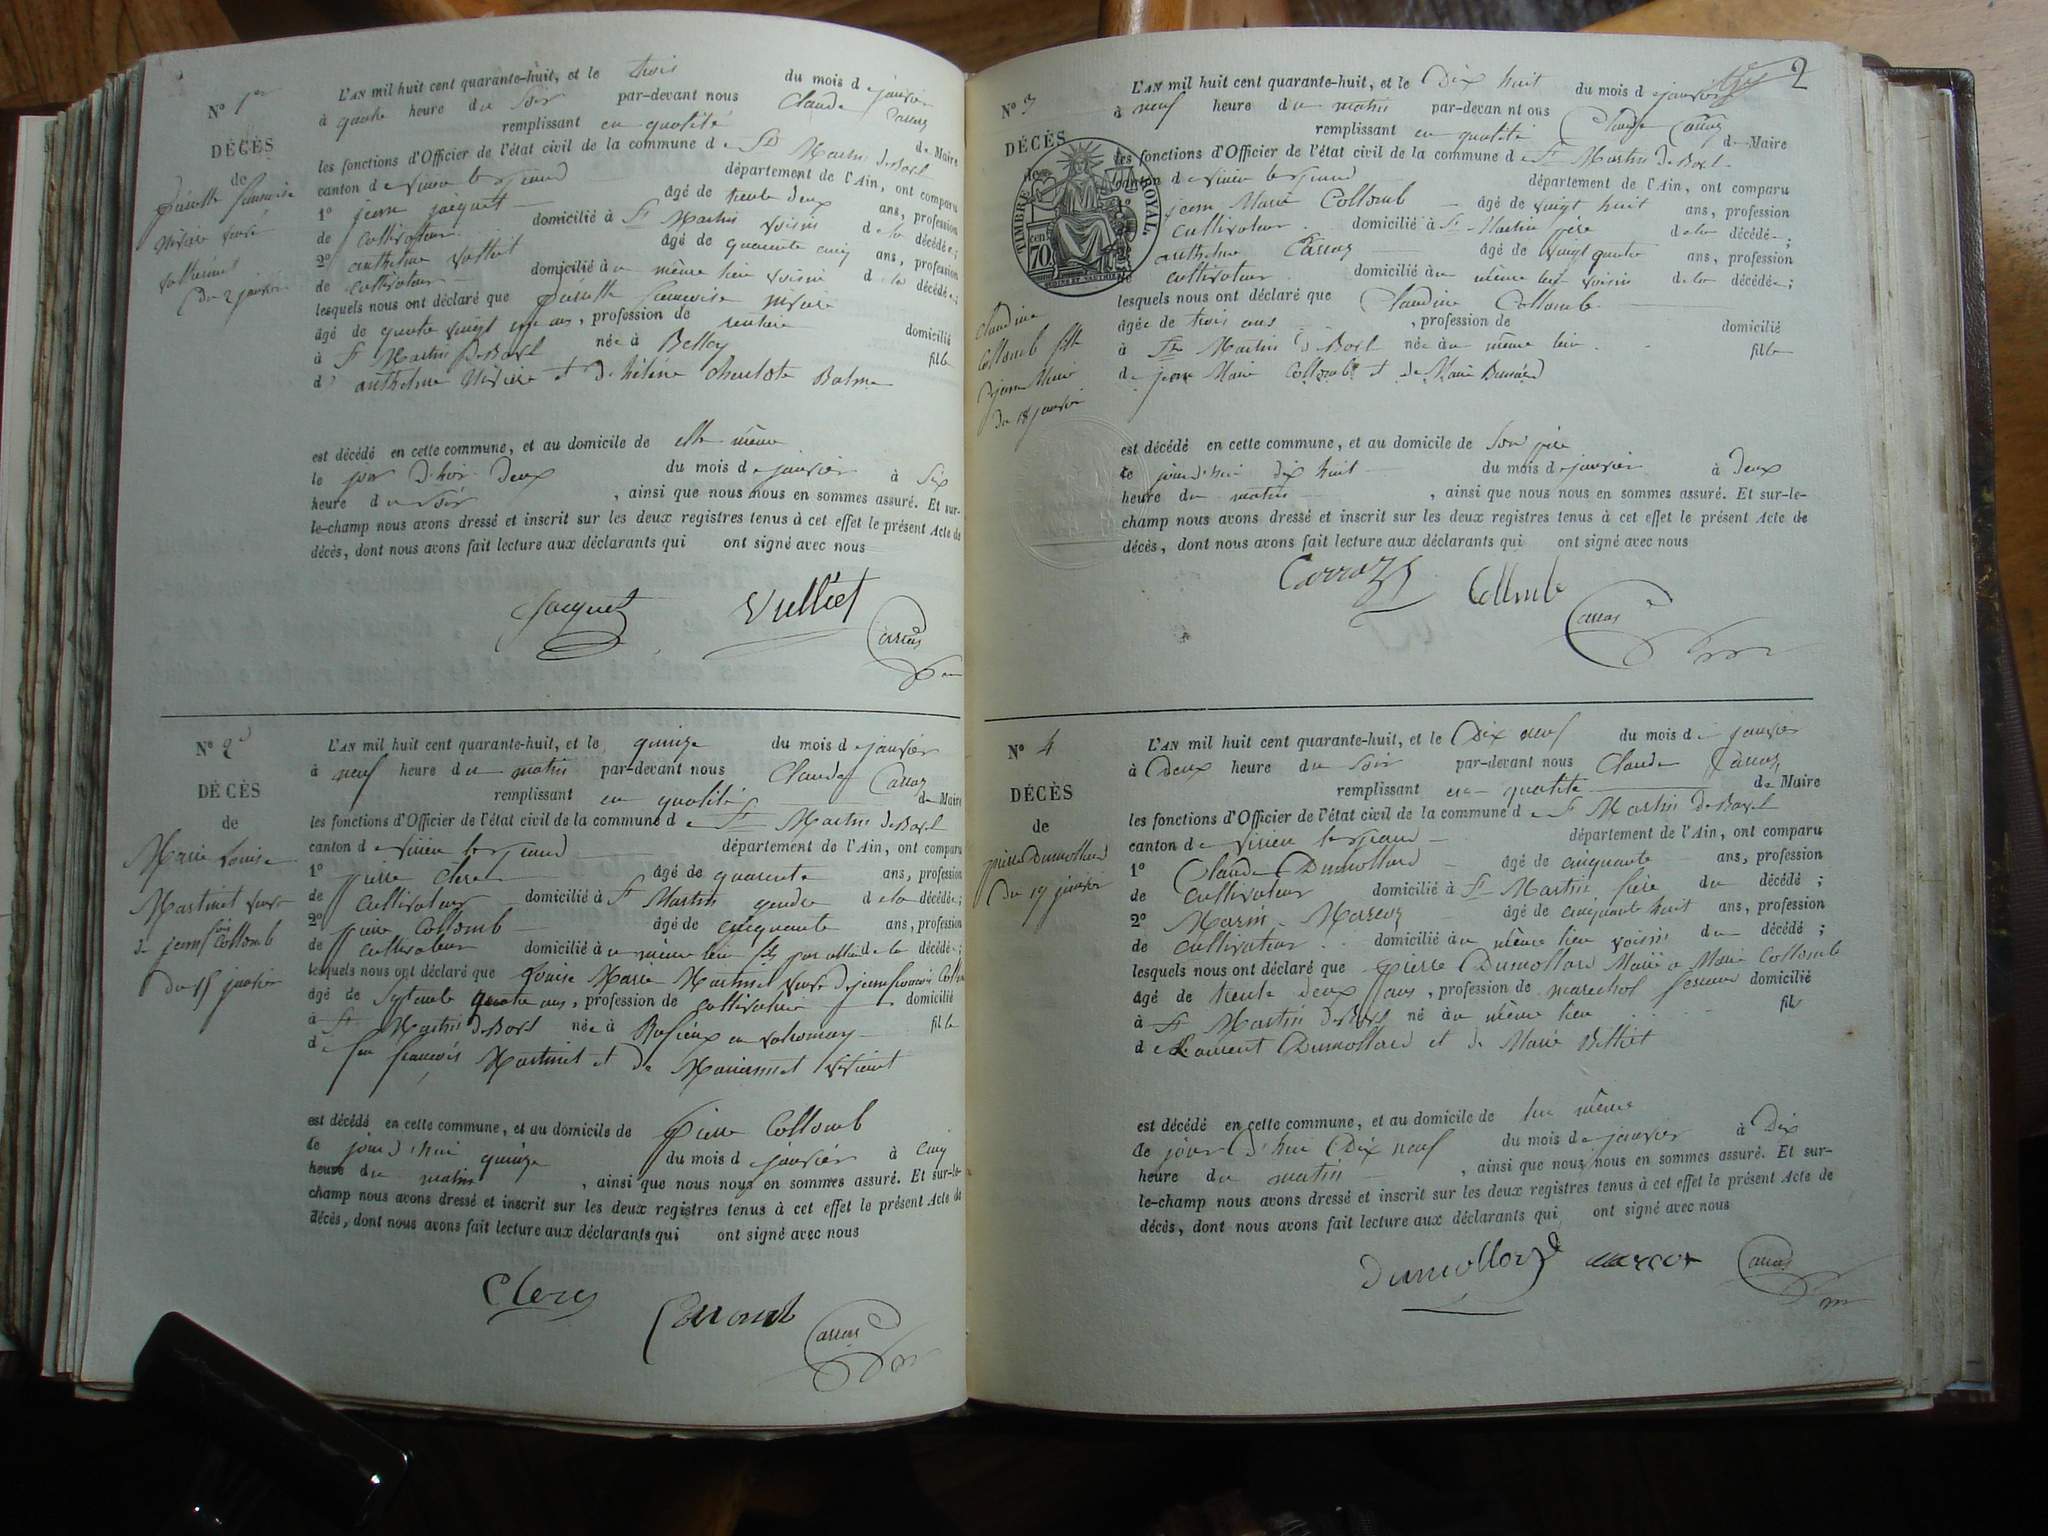 N° 1er
DÉCÈS
de
du 2 janvier
L'AN mil huit cent quarante-huit, et le trois du mois de janvier
à quatre heure du soir par-devant nous Claude Carroz
remplissant en qualité de Maire
les fonctions d'Officier de l'état civil de la commune de St Martin de Bavel
canton de virieu le grand département de l'Ain, ont comparu
1° jean jacquet âgé de trente deux ans, profession
de cultivateur domicilié à St Martin voisin de la décédée;
2° anthelme vulliet âgé de quarante cinq ans, profession
de cultivateur domicilié au même lieu voisin de la décédée;
lesquels nous ont déclaré que
âgé de quatre vingt ans, profession de rentière domicilié
à St Martin de Bavel née à Belley fille
d'anthelme et d'hélène charlotte Balme
est décédé en cette commune, et au domicile de elle même
le jour d'hier deux du mois de janvier à six
heure du soir , ainsi que nous nous en sommes assuré. Et sur-
le-champ nous avons dressé et inscrit sur les deux registres tenus à cet effet le présent Acte de
décès, dont nous avons fait lecture aux déclarants qui ont signé avec nous
Jacquet Vulliet Carroz
N° 2e
DÉCÈS
de
Marie Louise
Martinet veuve
de jean fois Collomb
Du 15 janvier
L'AN mil huit cent quarante-huit, et le quinze du mois de janvier
à neuf heure du matin par-devant nous Claude Carroz
remplissant en qualité de Maire
les fonctions d'Officier de l'état civil de la commune de St Martin de Bavel
canton de virieu le grand département de l'Ain, ont comparu
1° pierre Clerc âgé de quarante ans, profession
de cultivateur domicilié à St Martin gendre de la décédée;
2° pierre Collomb âgé de cinquante ans, profession
de cultivateur domicilié au même lieu fils de la décédée;
lesquels nous ont déclaré que Louise Marie Martinet veuve de jean francois Collomb
âgé de septante quatre ans, profession de cultivatrice domicilié
à St Martin de Bavel née à en valromey fille
de feu françois Martinet et de
est décédé en cette commune, et au domicile de pierre Collomb
le jour d'hui quinze du mois de janvier à cinq
heure du matin , ainsi que nous nous en sommes assuré. Et sur-le-
champ nous avons dressé et inscrit sur les deux registres tenus à cet effet le présent Acte de
décès, dont nous avons fait lecture aux déclarants qui ont signé avec nous
Clerc Collomb Carroz
2
N° 3
DÉCÈS
de
TIMBRE ROYAL.
70 cent
Claudine
Collomb fille
de jean Marie
du 18 janvier
L'AN mil huit cent quarante-huit, et le Dix huit du mois de janvier
à neuf heure du matin par-devan nt ous
remplissant en qualité Claude Carroz de Maire
les fonctions d'Officier de l'état civil de la commune de St Martin de Bavel
canton de virieu le grand département de l'Ain, ont comparu
jean Marie Collomb âgé de vingt huit ans, profession
cultivateur domicilié à St Martin père de la décédée;
anthelme Carroz âgé de vingt quatre ans, profession
cultivateur domicilié au même lieu voisin de la décédée;
lesquels nous ont déclaré que Claudine Collomb
âgée de trois ans , profession de domicilié
à St Martin de Bavel née au même lieu fille
de jean Marie Collomb et de Marie
est décédé en cette commune, et au domicile de son père
le jourd'hui dix huit du mois de janvier à deux
heure du matin , ainsi que nous nous en sommes assuré. Et sur-le-
champ nous avons dressé et inscrit sur les deux registres tenus à cet effet le présent Acte de
décès, dont nous avons fait lecture aux déclarants qui ont signé avec nous
Carroz Collomb Carroz
N° 4
DÉCÈS
de
pierre Dumollard
Du 19 janvier
L'AN mil huit cent quarante-huit, et le Dix neuf du mois de janvier
à Deux heure du soir par-devant nous Claude Carroz
remplissant en qualité de Maire
les fonctions d'Officier de l'état civil de la commune de St Martin de Bavel
canton de virieu le grand département de l'Ain, ont comparu
1° Claude Dumollard âgé de cinquante ans, profession
de cultivateur domicilié à St Martin frère du décédé;
2° Marin Marcoz âgé de cinquante huit ans, profession
de cultivateur domicilié au même lieu voisin du décédé;
lesquels nous ont déclaré que pierre Dumollard Marié a Marie Collomb
âgé de trente deux ans, profession de marechal ferrant domicilié
à St Martin de Bavel né au même lieu fils
de Laurent Dumollard et de Marie Vulliet
est décédé en cette commune, et au domicile de lui même
le jour d'hui Dix neuf du mois de janvier à Dix
heure du matin , ainsi que nous nous en sommes assuré. Et sur-
le-champ nous avons dressé et inscrit sur les deux registres tenus à cet effet le présent Acte de
décès, dont nous avons fait lecture aux déclarants qui ont signé avec nous
Dumollard marcoz Carroz